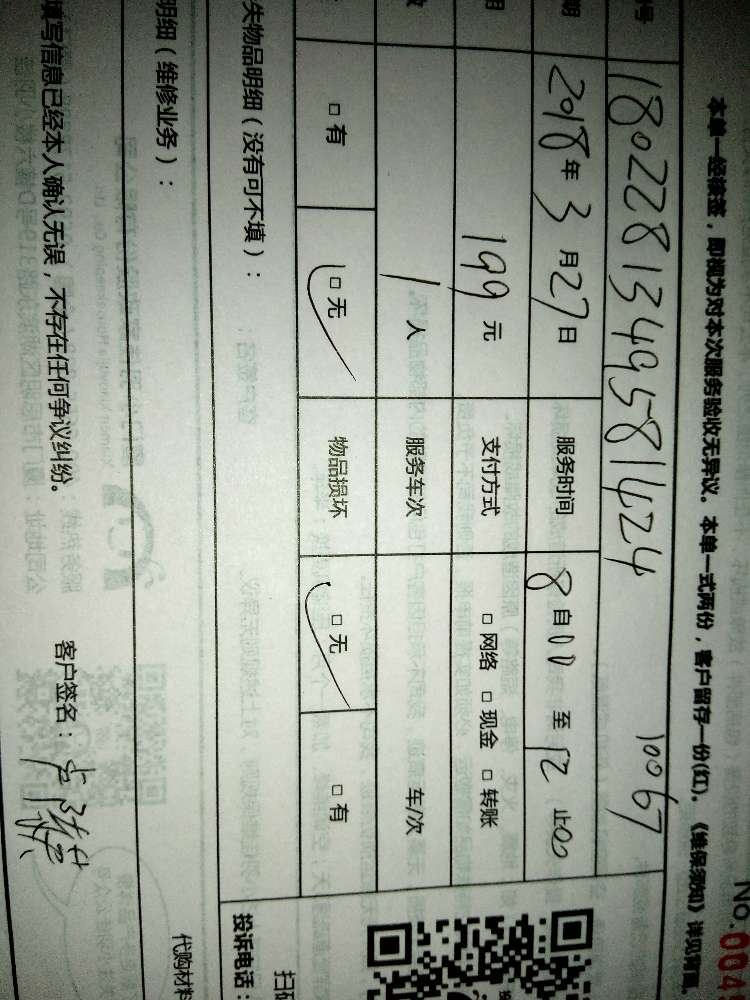 本单一经接签，即视为对本次服务验收无异议。本单一式两份，客户留存一份(红)。《维保须知》详见背面。
No.004
号 1802281349581424 10067
期 2018年3月27日 服务时间 8自00至12止00
199元 支付方式 □网络 □现金 □转账
1人 服务车次 车/次
□有 □无 物品损坏 □无 □有
失物品明细（没有可不填）：
明细（维修业务）：
投诉电话：
扫码
代购材料
填写信息已经本人确认无误，不存在任何争议纠纷。 客户签名：